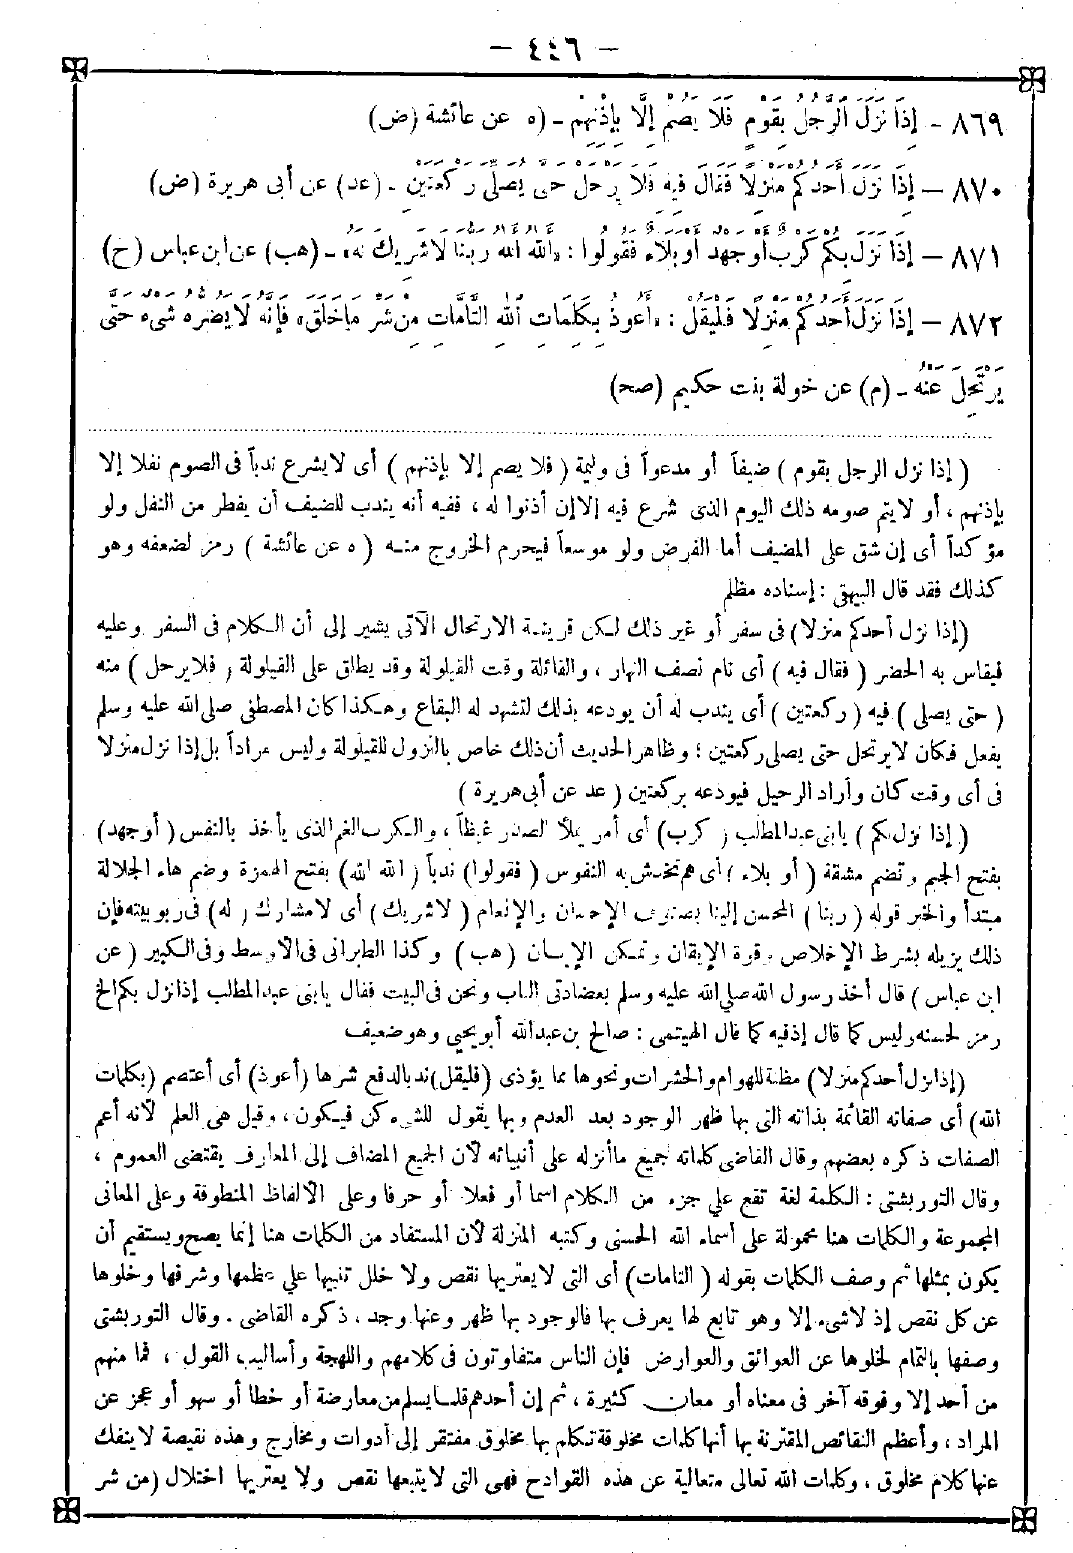 — ٤٤٦ —
٨٦٩ - إِذَا نَزَلَ الرَّجُلُ بِقَوْمٍ فَلَا يَصُمْ إِلَّا بِإِذْنِهِمْ - (ه عن عائشة (ض)
٨٧٠ - إِذَا نَزَلَ أَحَدُكُمْ مَنْزِلًا فَقَالَ فِيهِ فَلَا يَرْحَلْ حَتَّى يُصَلِّيَ رَكْعَتَيْنِ - (عد) عن أبى هريرة (ض)
٨٧١ - إِذَا نَزَلَ بِكُمْ كَرْبٌ أَوْ جَهْدٌ أَوْ بَلَاءٌ فَقُولُوا : «اللهُ اللهُ رَبُّنَا لَا شَرِيكَ لَهُ» - (هب) عن ابن عباس (ح)
٨٧٢ - إِذَا نَزَلَ أَحَدُكُمْ مَنْزِلًا فَلْيَقُلْ : «أَعُوذُ بِكَلِمَاتِ اللهِ التَّامَّاتِ مِنْ شَرِّ مَا خَلَقَ» فَإِنَّهُ لَا يَضُرُّهُ شَيْءٌ حَتَّى
يَرْتَحِلَ عَنْهُ - (م) عن خولة بنت حكيم (صح)
( إذا نزل الرجل بقوم ) ضيفاً أو مدعواً فى وليمة ( فلا يصم إلا بإذنهم ) أى لا يشرع ندباً فى الصوم نفلا إلا
بإذنهم ، أو لا يتم صومه ذلك اليوم الذى شرع فيه إلا إن أذنوا له ، ففيه أنه يندب للضيف أن يفطر من النفل ولو
مؤكداً أى إن شق على المضيف أما الفرض ولو موسعاً فيحرم الخروج منه ( ه عن عائشة ) رمز لضعفه وهو
كذلك فقد قال البيهقى : إسناده مظلم
(إذا نزل أحدكم منزلا) فى سفر أو غير ذلك لكن قرينة الارتحال الآتى يشير إلى أن الكلام فى السفر وعليه
فيقاس به الحضر ( فقال فيه ) أى نام نصف النهار ، والقائلة وقت القيلولة وقد يطلق على القيلولة ( فلا يرحل ) منه
( حتى يصلى ) فيه ( ركعتين ) أى يندب له أن يودعه بذلك لتشهد له البقاع وهكذا كان المصطفى صلى الله عليه وسلم
يفعل فكان لا يرتحل حتى يصلى ركعتين ؛ وظاهر الحديث أن ذلك خاص بالنزول للقيلولة وليس مراداً بل إذا نزل منزلا
فى أى وقت كان وأراد الرحيل فيودعه بركعتين ( عد عن أبى هريرة )
( إذا نزل بكم ) يا بنى عبد المطلب ( كرب) أى أمر يملأ الصدر غيظاً ، والكرب الغم الذى يأخذ بالنفس ( أو جهد)
بفتح الجيم وتضم مشقة ( أو بلاء ) أى هم تحدث به النفوس ( فقولوا) ندباً ( الله الله) بفتح الهمزة وضم هاء الجلالة
مبتدأ والخبر قوله ( ربنا ) المحسن إلينا بصنوف الإحسان والإنعام ( لا شريك ) أى لا مشارك ( له) فى ربوبيته فإن
ذلك يزيله بشرط الإخلاص وقوة الإيقان وتمكن الإيمان ( هب ) وكذا الطبرانى فى الأوسط وفى الكبير ( عن
ابن عباس ) قال أخذ رسول الله صلى الله عليه وسلم بعضادتى الباب ونحن فى البيت فقال يا بنى عبد المطلب إذا نزل بكم الخ
رمز لحسنه وليس كما قال إذ فيه كما قال الهيتمى : صالح بن عبد الله أبو يحيى وهو ضعيف
(إذا نزل أحدكم منزلا) مظنة للهوام والحشرات ونحوها مما يؤذى (فليقل) ندبا لدفع شرها (أعوذ) أى أعتصم (بكلمات
الله) أى صفاته القائمة بذاته التى بها ظهر الوجود بعد العدم وبها يقول للشىء كن فيكون ، وقيل هى العلم لأنه أعم
الصفات ذكره بعضهم وقال القاضى كلماته جميع ما أنزله على أنبيائه لأن الجميع المضاف إلى المعارف يقتضى العموم ،
وقال التوربشتى : الكلمة لغة تقع على جزء من الكلام اسما أو فعلا أو حرفا وعلى الألفاظ المنطوقة وعلى المعانى
المجموعة والكلمات هنا محمولة على أسماء الله الحسنى وكتبه المنزلة لأن المستفاد من الكلمات هنا إنما يصح ويستقيم أن
يكون بمثلها ثم وصف الكلمات بقوله ( التامات) أى التى لا يعتريها نقص ولا خلل تنبيها على عظمها وشرفها وخلوها
عن كل نقص إذ لا شىء إلا وهو تابع لها يعرف بها فالوجود بها ظهر وعنها وجد ، ذكره القاضى . وقال التوربشتى
وصفها بالتمام لخلوها عن العوائق والعوارض فإن الناس متفاوتون فى كلامهم واللهجة وأساليب القول ، فما منهم
من أحد إلا وفوقه آخر فى معناه أو معان كثيرة ، ثم إن أحدهم قلما يسلم من معارضة أو خطأ أو سهو أو عجز عن
المراد ، وأعظم النقائص المقترنة بها أنها كلمات مخلوقة تكلم بها مخلوق مفتقر إلى أدوات ومخارج وهذه نقيصة لا ينفك
عنها كلام مخلوق ، وكلمات الله تعالى متعالية عن هذه القوادح فهى التى لا يتبعها نقص ولا يعتريها اختلال (من شر